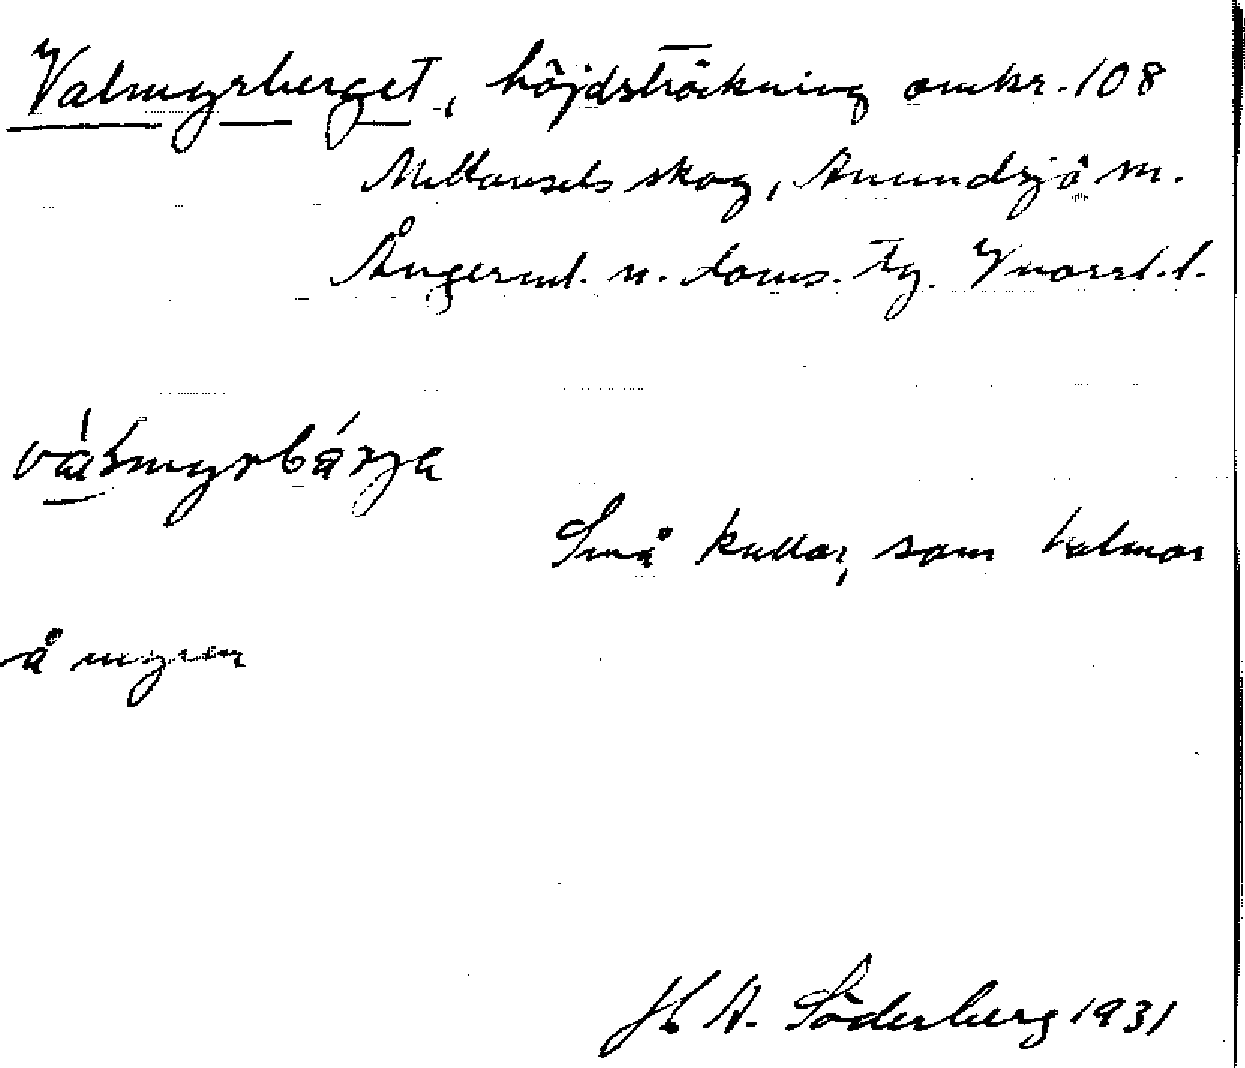 Valmyrberget, höjdsträckning omkr. 108
Mellansels skog, Anundsjö sn.
Ångerml. n. doms. tg. Vnorrl. l.
válmyrbárja
Små kullar, som halmar
å myren
H A. Söderberg 1931